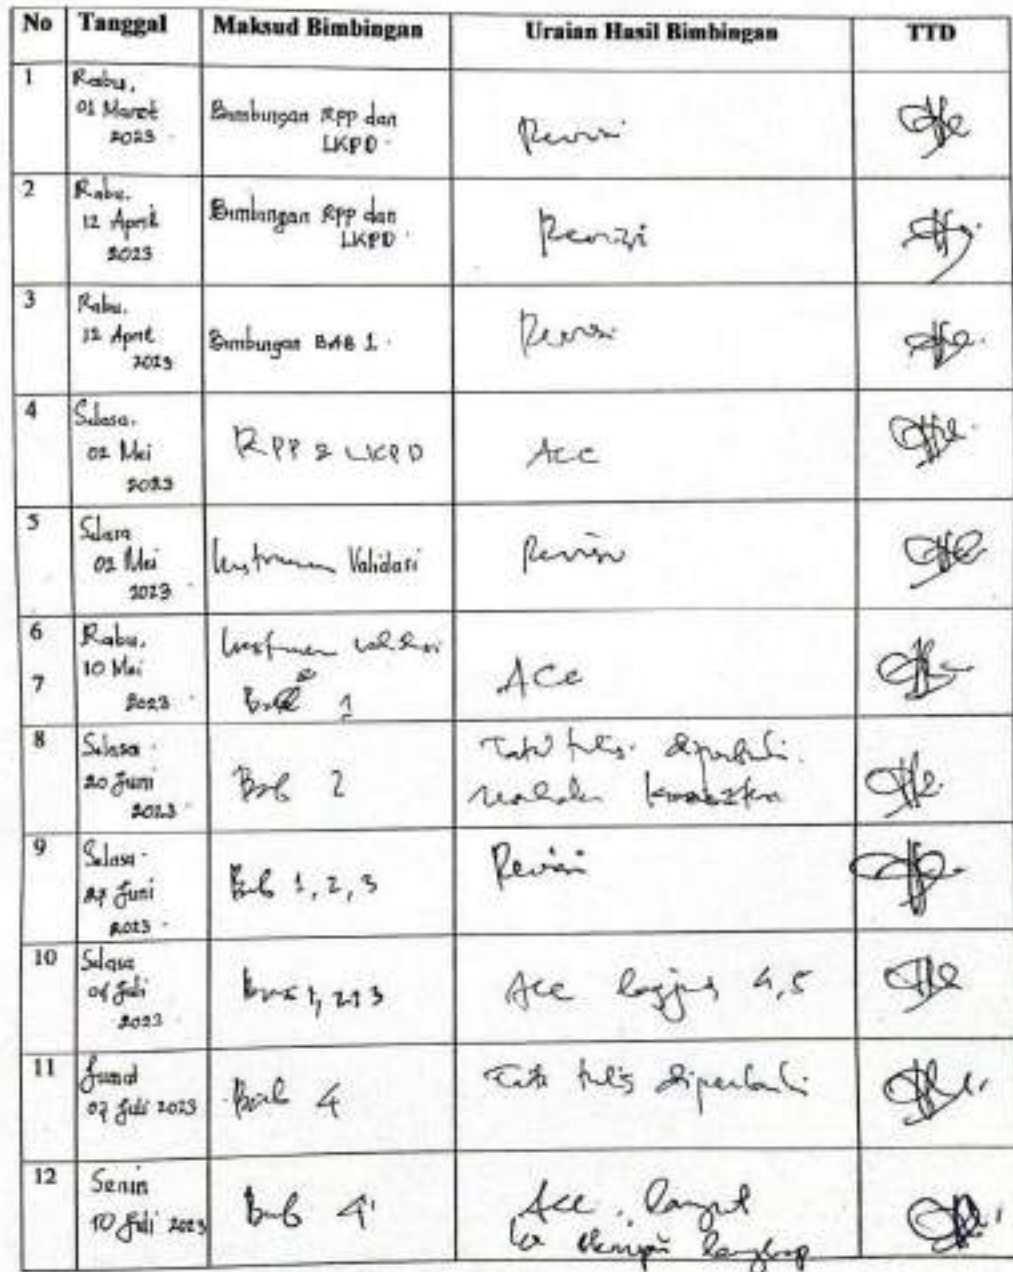 No Tanggal Maksud Bimbingan Uraian Hasil Bimbingan TTD
1 Rabu,
01 Maret
2023
Bimbingan RPP dan
LKPD.
Revisi
2 Rabu.
12 April
2023
Bimbingan RPP dan
LKPD.
Revisi
3 Rabu.
12 April
2023
Bimbingan BAB 1.
Revisi
4 Selasa.
02 Mei
2023
RPP & LKPD
Acc
5 Selasa
02 Mei
2023
Instrumen Validasi
Revisi
6 Rabu,
7 10 Mei
2023
Instrumen validasi
Bab 1
ACC
8 Selasa
20 Juni
2023
Bab 2
Tata tulis diperbaiki.
9 Selasa
27 Juni
2023
Bab 1, 2, 3
Revisi
10 Selasa
04 Juli
2023
Bab 1, 2, 3
Acc 4,5
11 Jumat
07 Juli 2023
Bab 4
Tata tulis diperbaiki
12 Senin
10 Juli 2023
Bab 4
Acc. lanjut
lengkap